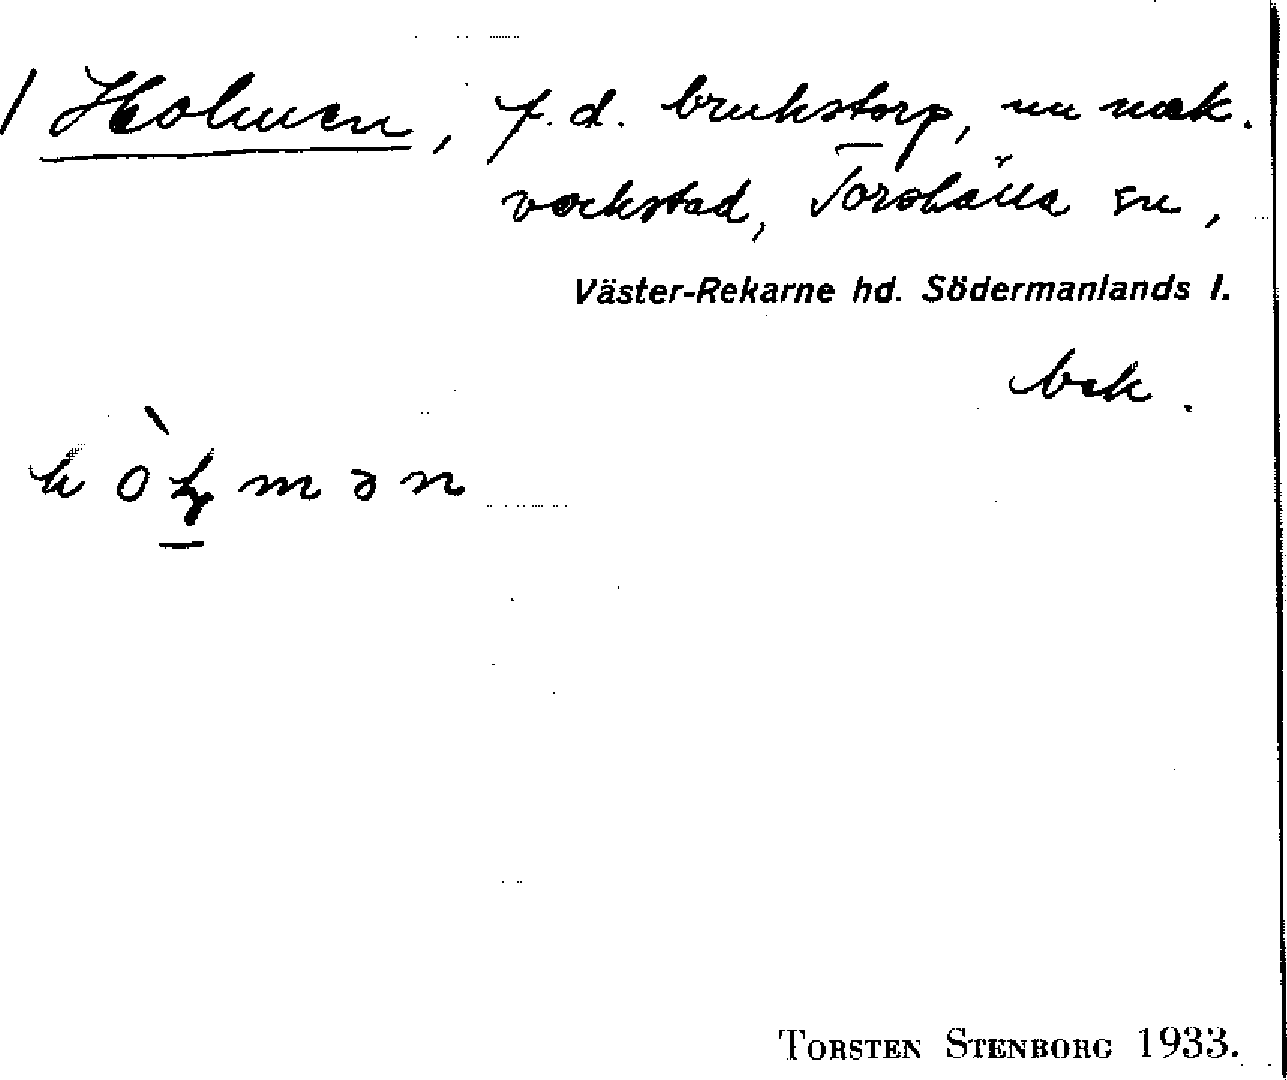 / Holmen, f.d. brukstorp, nu mek.
verkstad, Torshälla sn,
Väster-Rekarne hd. Södermanlands l.
bek.
Torsten Stenborg 1933.